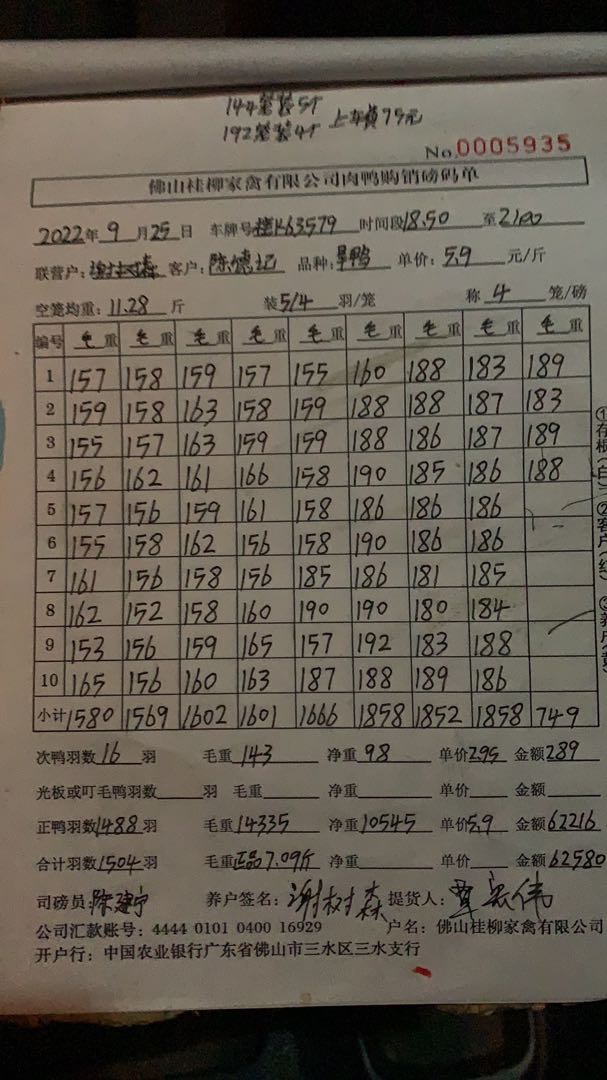 144笼装5个
192笼装4个 上车费75元
No.0005935
佛山桂柳家禽有限公司肉鸭购销磅码单
2022年9月25日 车牌号 K63579 时间段18.50至2100
联营户: 谢树森 客户: 陈德记 品种: 旱鸭 单价: 5.9 元/斤
空笼均重: 11.28 斤 装5/4羽/笼 称4笼/磅
编号 毛重 毛重 毛重 毛重 毛重 毛重 毛重 毛重 毛重
1 157 158 159 157 155 160 188 183 189
2 159 158 163 158 159 188 188 187 183
3 155 157 163 159 159 188 186 187 189
4 156 162 161 166 158 190 185 186 188
5 157 156 159 161 158 186 186 186
6 155 158 162 156 158 190 186 186
7 161 156 158 156 185 186 181 185
8 162 152 158 160 190 190 180 184
9 153 156 159 165 157 192 183 188
10 165 156 160 163 187 188 189 186
小计 1580 1569 1602 1601 1666 1858 1852 1858 749
次鸭羽数16羽 毛重143 净重98 单价2.95 金额289
光板或叮毛鸭羽数 羽 毛重 净重 单价 金额
正鸭羽数1488羽 毛重14335 净重10545 单价5.9 金额62216
合计羽数1504羽 毛重正品7.09斤 净重 单价 金额62580
司磅员: 陈建宁 养户签名: 谢树森 提货人: 覃宏伟
公司汇款账号: 4444 0101 0400 16929 户名: 佛山桂柳家禽有限公司
开户行: 中国农业银行广东省佛山市三水区三水支行
①存根(白)②客户(红)③养户(黄)